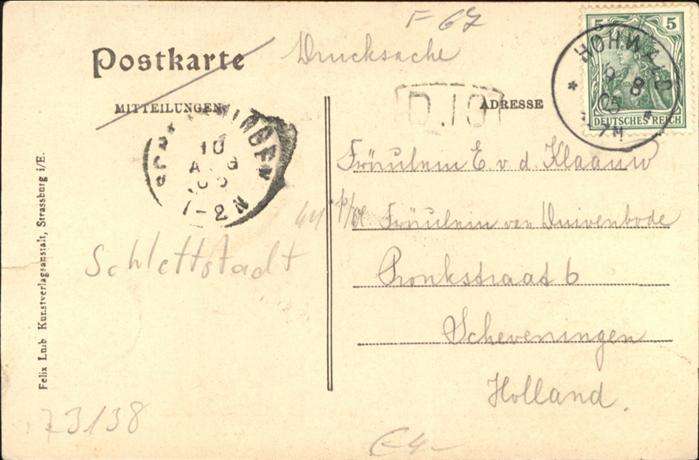 F 67
Postkarte
Drucksache
MITTEILUNGEN
ADRESSE
5 5
DEUTSCHES REICH
HOHWALD
9 8
7-M
D.10
10
AUG
1-2 N
Fräulein E v. d. Klaauw
p/a Fräulein van Duivenbode
Pronkstraat 6
Scheveningen
Holland.
Schlettstadt
Felix Luib Kunstverlagsanstalt, Strassburg i/E.
73138